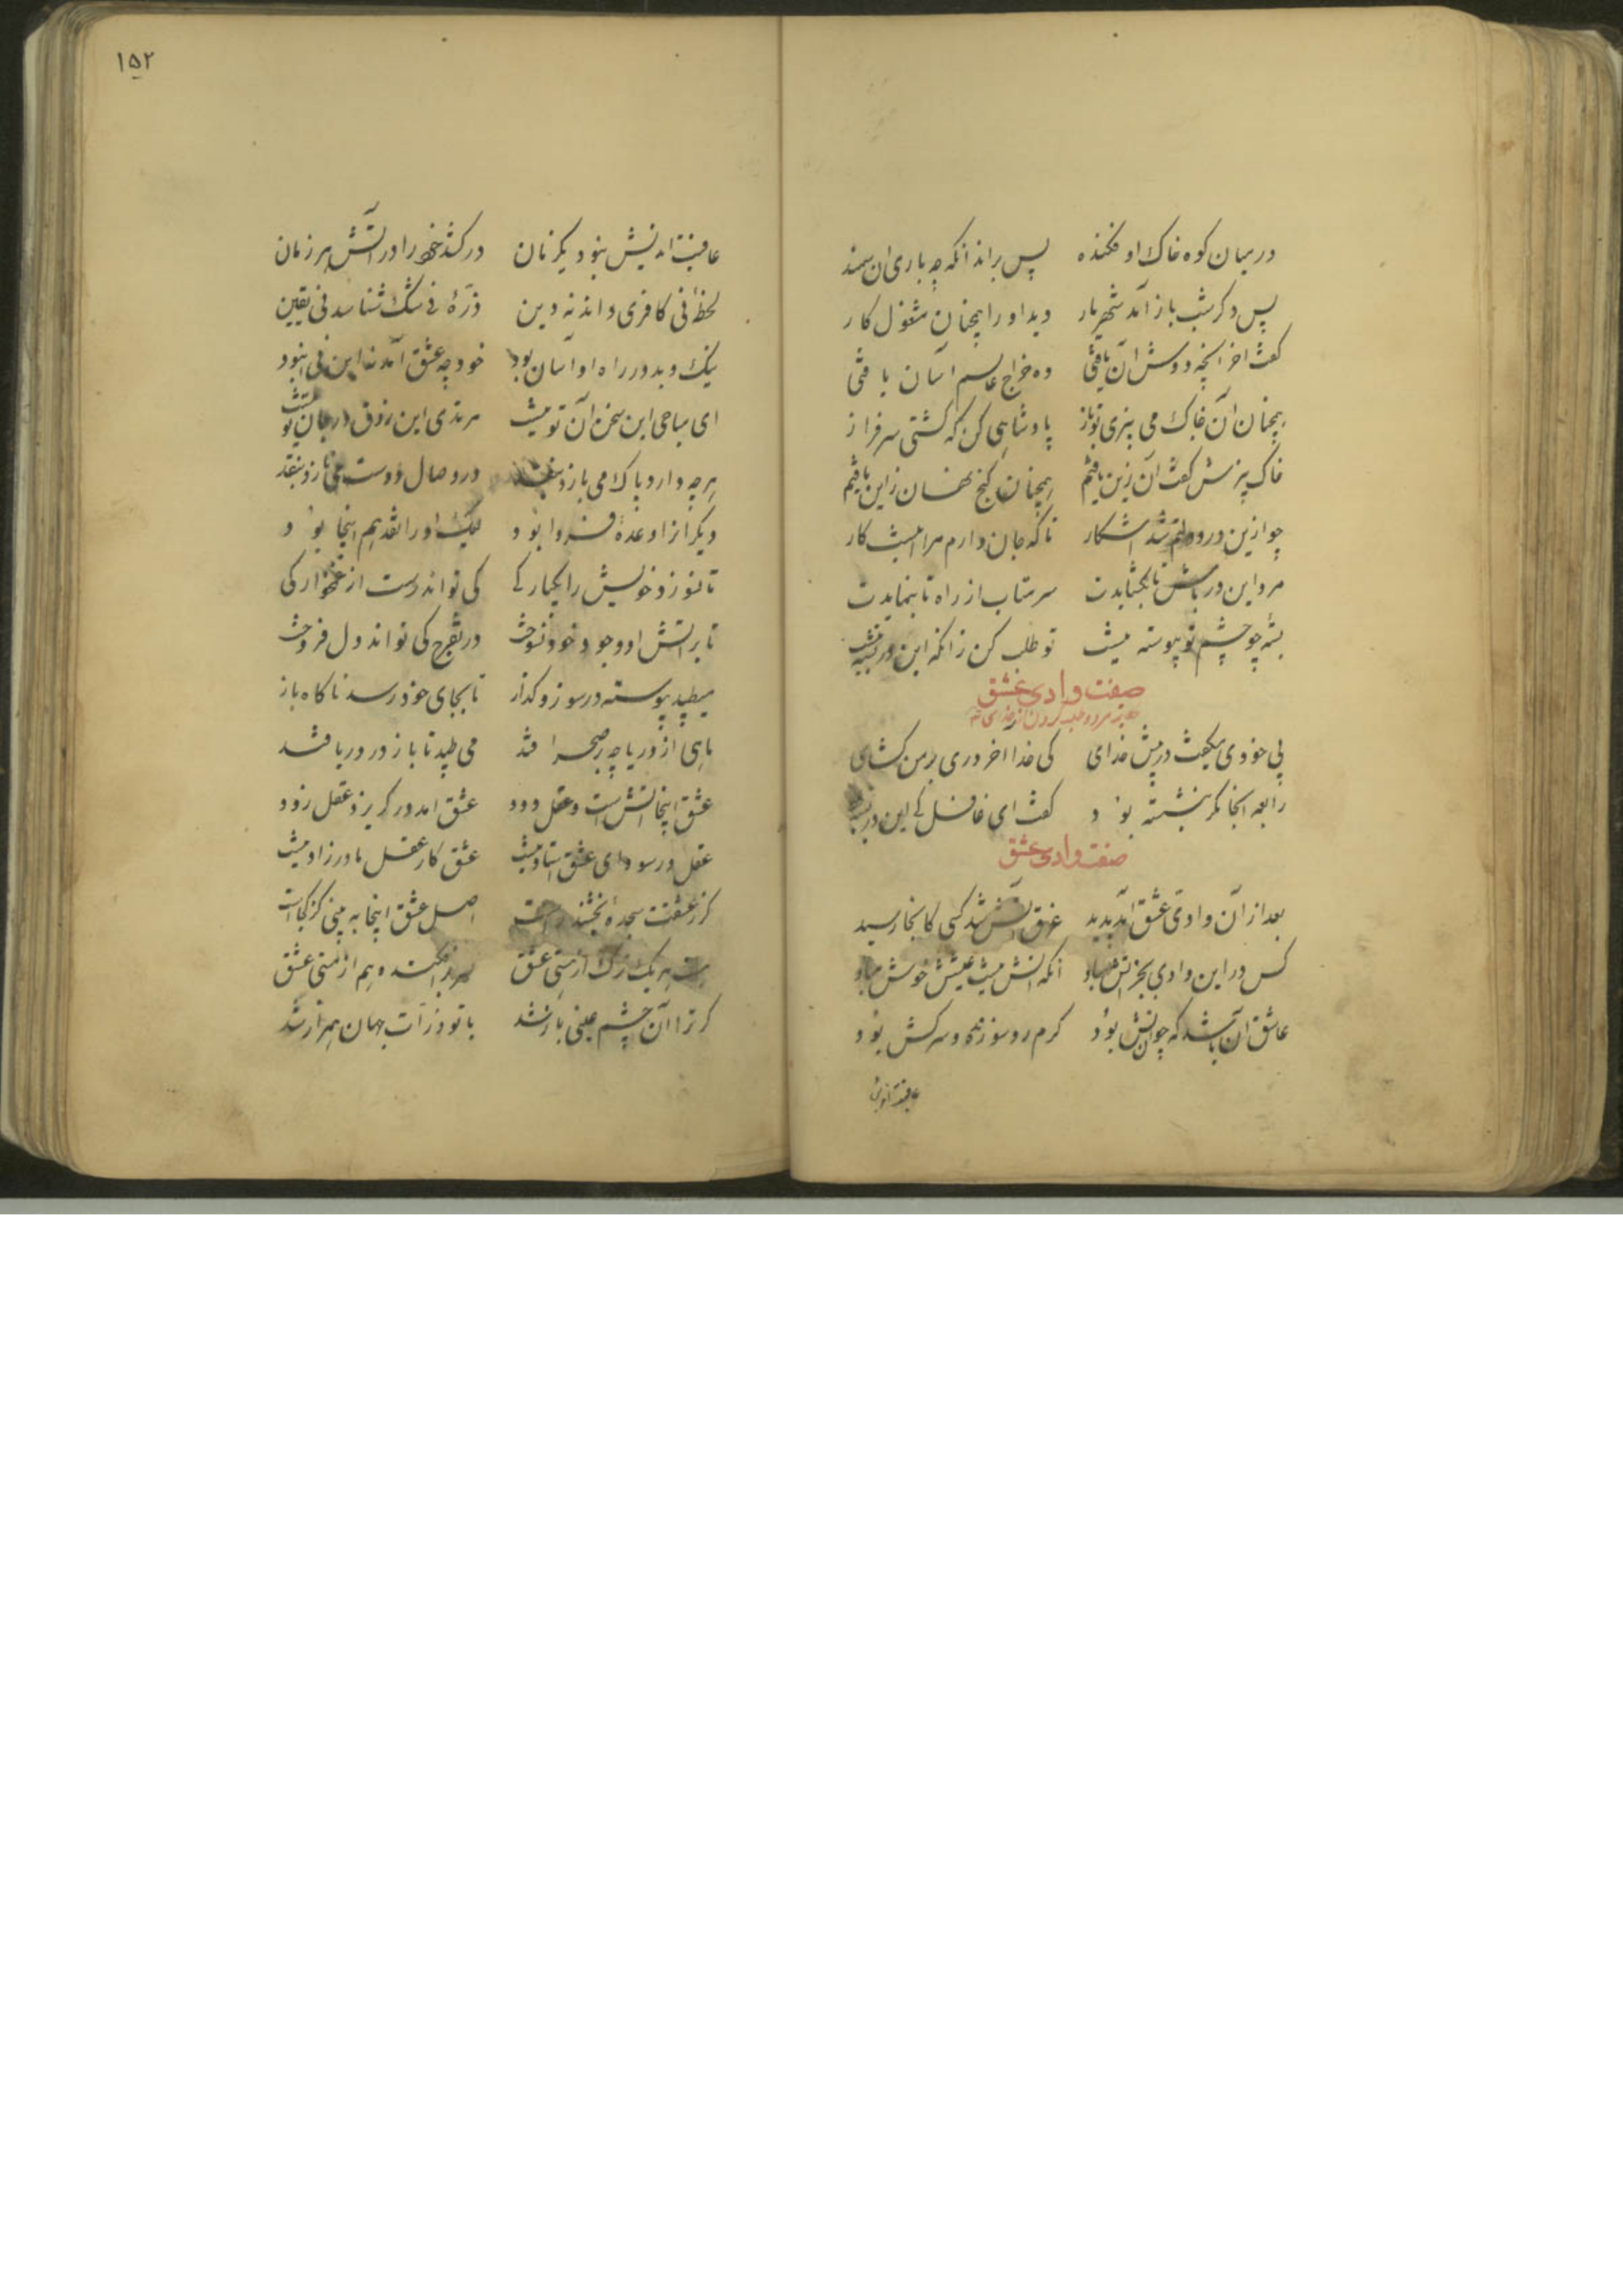 در میان کوه خاک او فکنده پس براند آنکه چه باری ان سمند
پس دکر شب باز آمد شهریار دید او را همچنان مشغول کار
کفت اخر آنچه دوش آن یافتی ده خراج عالم آسان یافتی
همچنان آن خاک می بیزی تو باز پادشاهی کن که کشتی سرفراز
خاک بیزش کفت آن زین یافتم همچنان کنج نهان زاین یافتم
چو ازین در دولتم شد اشکار تا که جان دارم مرا اینست کار
مرد این در باش تا بکشایدت سر متاب از راه تا بنمایدت
بسته چو چشم تو پیوسته نیست تو طلب کن زانکه این در بسته نیست
صفت وادی عشق
بی خودی میکفت در پیش خدای کی خدا اخر دری بر من کشای
رابعه آنجا مکر بنشسته بود کفت ای غافل کی این در بسته
صفت وادی عشق
بعد از آن وادی عشق آمد پدید غرق آتش شد کسی کانجا رسید
کس در این وادی بجز اتش مباد آنکه اتش نیست عیشش خوش مباد
عاشق آن باشد که چون اتش بود کرم رو سوزنده و سرکش بود
عاقبت اندیش
۱۵۲
عاقبت اندیش نبود یکزمان در کشد خوش را در آتش هر زمان
لحظهٔ نی کافری داند نه دین ذرهٔ نی شک شناسد نی یقین
نیک و بد در راه او آسان بود خود چه عشق آمد نه این نی انبود
ای مباحی این سخن آن تو نیست مرتدی این ذوق در جان تو نیست
هر چه دارد پاک می بازد بنقد در وصال دوست می نازد بنقد
دیکران را وعدهٔ فردا بود لیک او را نقد هم اینجا بود
تا نسوزد خویش را یکبار کی کی تواند رست از غمخوارکی
تا بر اتش او وجود خود نسوخت در تفرج کی تواند دل فروخت
میطپد پیوسته در سوز و کداز تا بجای خود رسد ناکاه باز
ماهی از دریا چه بر صحرا فتد می طپد تا باز در دریا فتد
عشق اینجا اتش است و عقل دود عشق امد در کریزد عقل زود
عقل در سودای عشق استاد نیست عشق کار عقل مادرزاد نیست
کر ز عشقت سجدهٔ بخشند راست اصل عشق اینجا به بینی کز کجاست
هست هر یک برک از مستی عشق سر برافکنده هم از مستی عشق
کر ترا آن چشم عینی باز شد با تو ذرات جهان همراز شد